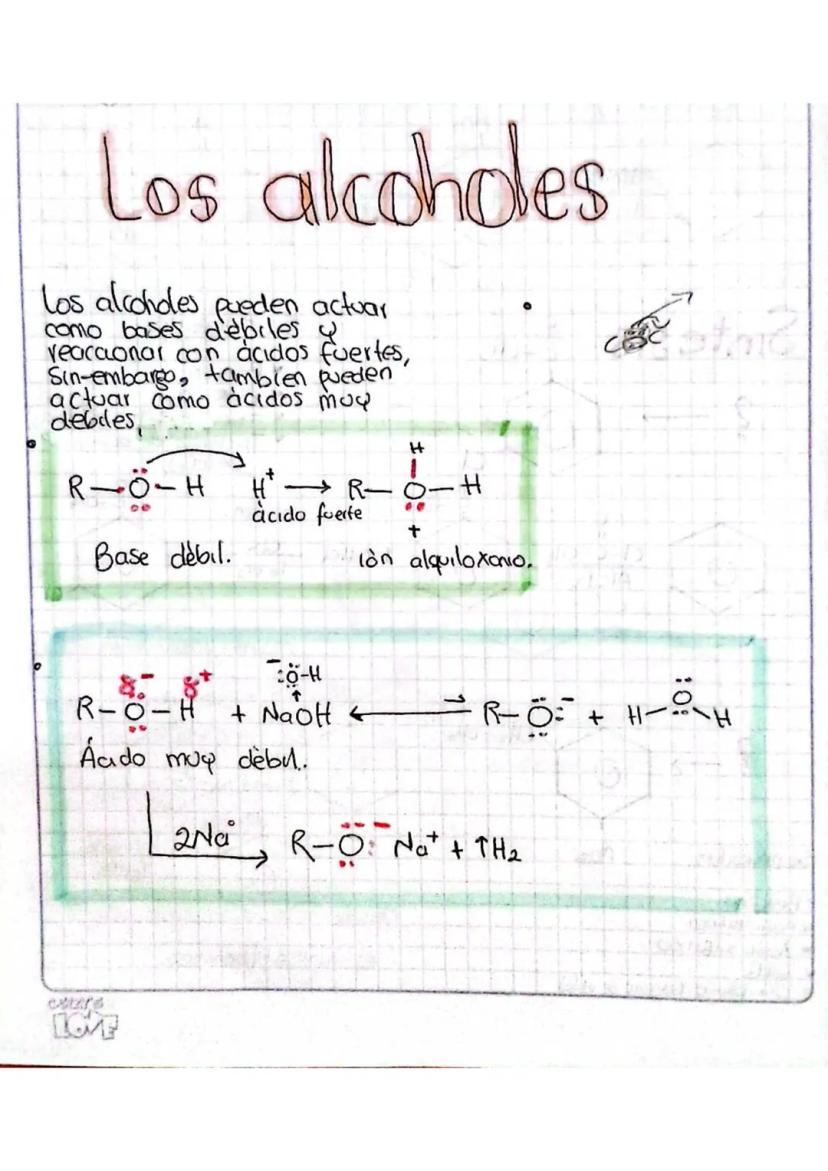 Los alcoholes
Los alcoholes pueden actuar
como bases dèbiles y
reaccionar con àcidos fuertes,
Sin-embargo, tambien pueden
actuar como àcidos muy
debiles,
H
R—O—H H⁺ → R—O—H
àcido fuerte
+
Base dèbil. iòn alquiloxonio.
⁻:Ö-H
δ⁻ δ⁺
R-O-H + NaOH ⟷ ⇀ R-O:⁻ + H-O-H
Ácido muy dèbil.
2Na° → R-O:⁻ Na⁺ + ↑H₂
LOVE